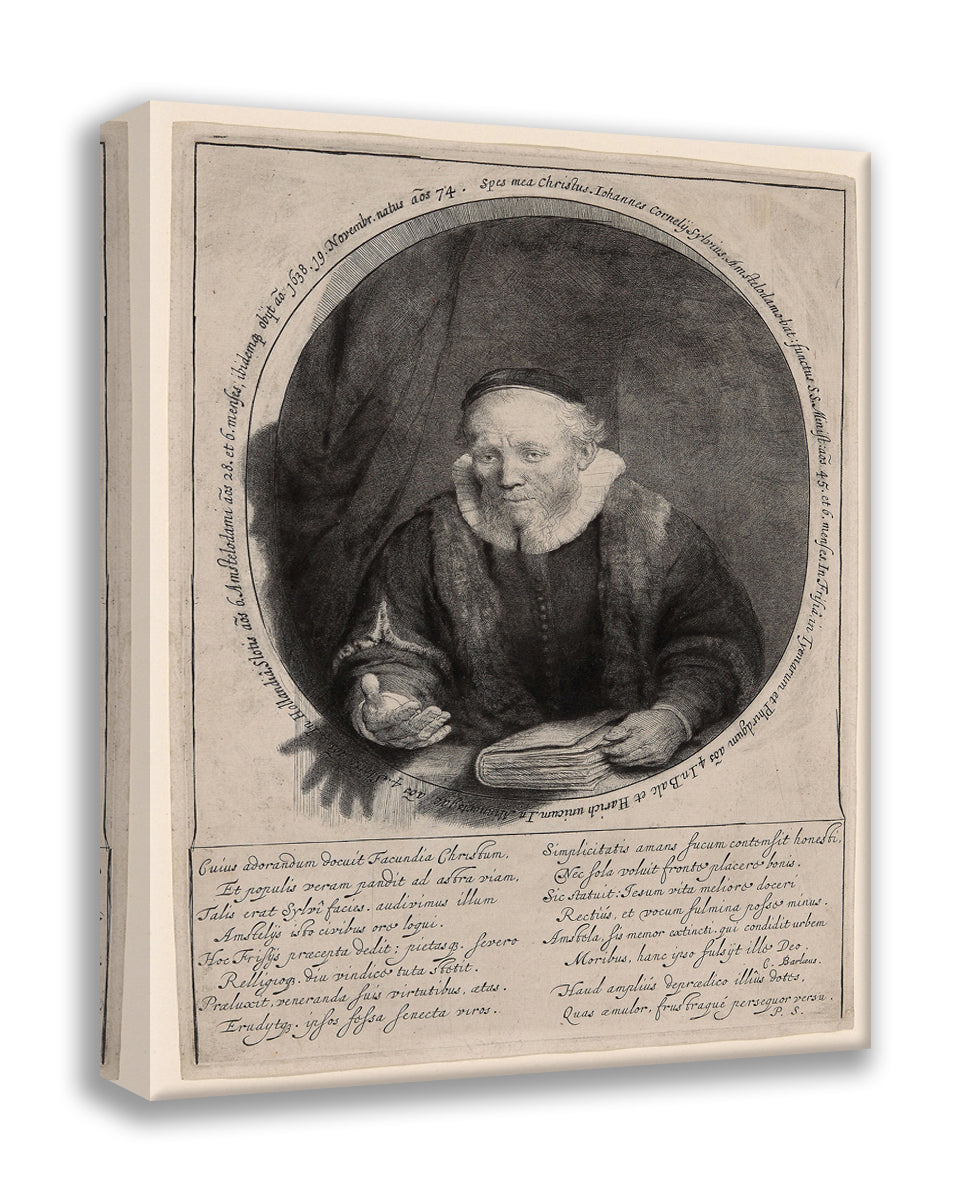 Spes mea Christus. Iohannes Cornelij Sylvius, Amstelodamo-bat: functus S.S. Minist: aõs 45. et 6. menses. In Frisiâ, in Tyemarum et Phirdgum aõs 4. In Balc et Harich unicum. In aõs 4. In Hollandiâ, Slotis aõs 6. Amstelodami aõs 28. et 6. menses; ibidemq obijt aõ: 1638. 19. Novembr. natus aõs 74.
Cuius adorandum docuit Facundia Christum,
Et populis veram pandit ad astra viam,
Talis erat Sylvî facies. audivimus illum
Amstelijs isto civibus ore loqui.
Hoc Frisijs præcepta dedit; pietasq. severo
Relligioq. diu vindice tuta stetit.
Præluxit, veneranda suis virtutibus, ætas.
Erudytq. ipsos fessa senecta viros.
Simplicitatis amans fucum contemsit honesti,
Nec sola voluit fronte placere bonis.
Sic statuit: Iesum vita meliore doceri
Rectiùs, et vocum fulmina posse minus.
Amstela, sis memor extincti. qui condidit urbem
Moribus, hanc ipso fulsijt ille Deo.
C. Barlæus.
Haud amplius deprædico illius dotes,
Quas æmulor, frustraque persequor versu.
P. S.